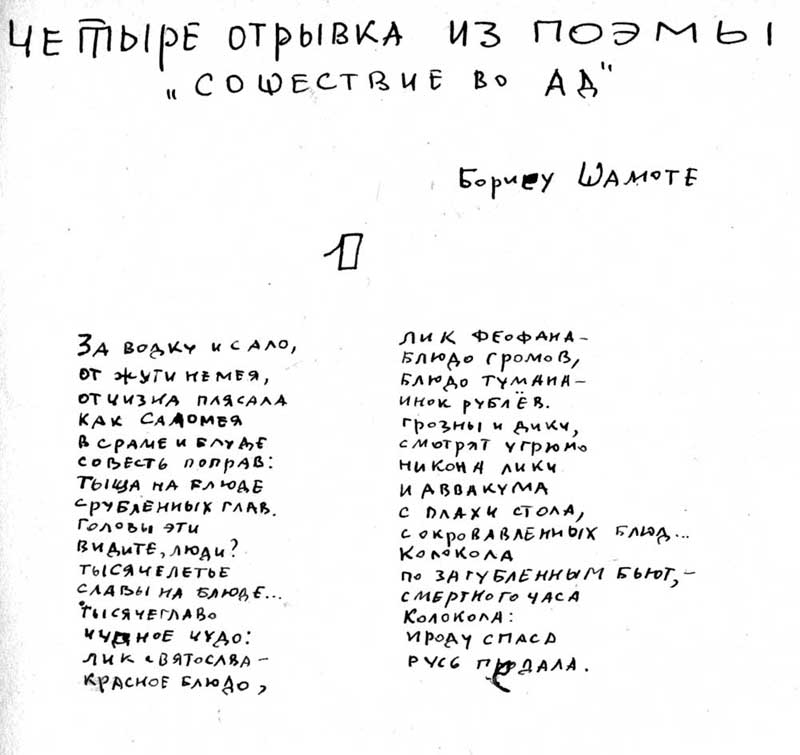 ЧЕТЫРЕ ОТРЫВКА ИЗ ПОЭМЫ
„СОШЕСТВИЕ ВО АД"
Борису ШАМОТЕ
1
ЗА ВОДКУ И САЛО,
ОТ ЖУТИ НЕМЕЯ,
ОТЧИЗНА ПЛЯСАЛА
КАК САЛОМЕЯ
В СРАМЕ И БЛУДЕ
СОВЕСТЬ ПОПРАВ:
ТЫЩА НА БЛЮДЕ
СРУБЛЕННЫХ ГЛАВ.
ГОЛОВЫ ЭТИ
ВИДИТЕ, ЛЮДИ?
ТЫСЯЧЕЛЕТЬЕ
СЛАВЫ НА БЛЮДЕ...
ТЫСЯЧЕГЛАВО
ЧУДНОЕ ЧУДО:
ЛИК СВЯТОСЛАВА –
КРАСНОЕ БЛЮДО,
ЛИК ФЕОФАНА –
БЛЮДО ГРОМОВ,
БЛЮДО ТУМАНА –
ИНОК РУБЛЁВ.
ГРОЗНЫ И ДИКИ,
СМОТРЯТ УГРЮМО
НИКОНА ЛИКИ
И АВВАКУМА
С ПЛАХИ СТОЛА,
С ОКРОВАВЛЕННЫХ БЛЮД...
КОЛОКОЛА
ПО ЗАГУБЛЕННЫМ БЬЮТ, –
СМЕРТНОГО ЧАСА
КОЛОКОЛА:
ИРОДУ СПАСА
РУСЬ ПРЕДАЛА.